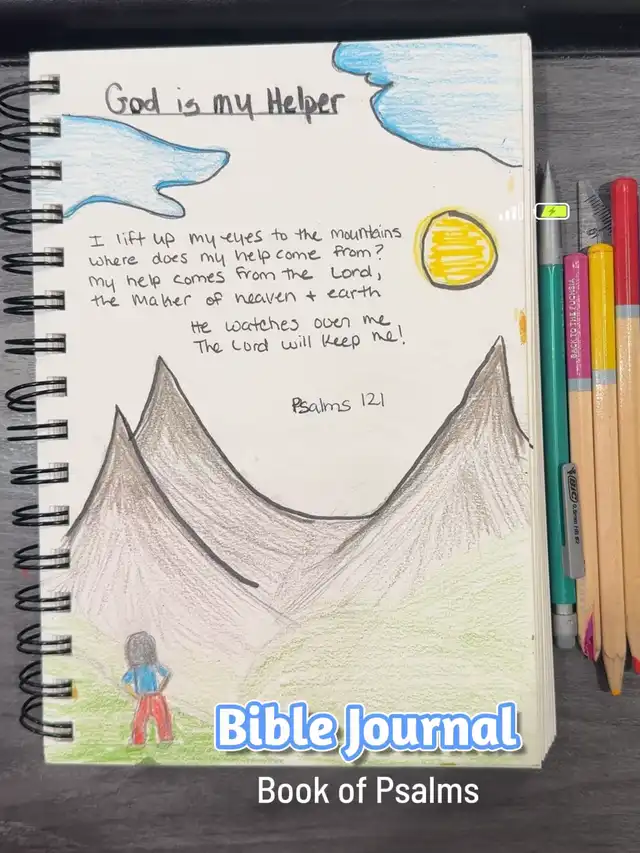 God is my Helper
I lift up my eyes to the mountains
where does my help come from?
My help comes from the Lord,
the Maker of heaven + earth
He watches over me
The Lord will keep me!
Psalms 121
BACK TO THE FUCHSIA
BIC
Bible Journal
Book of Psalms